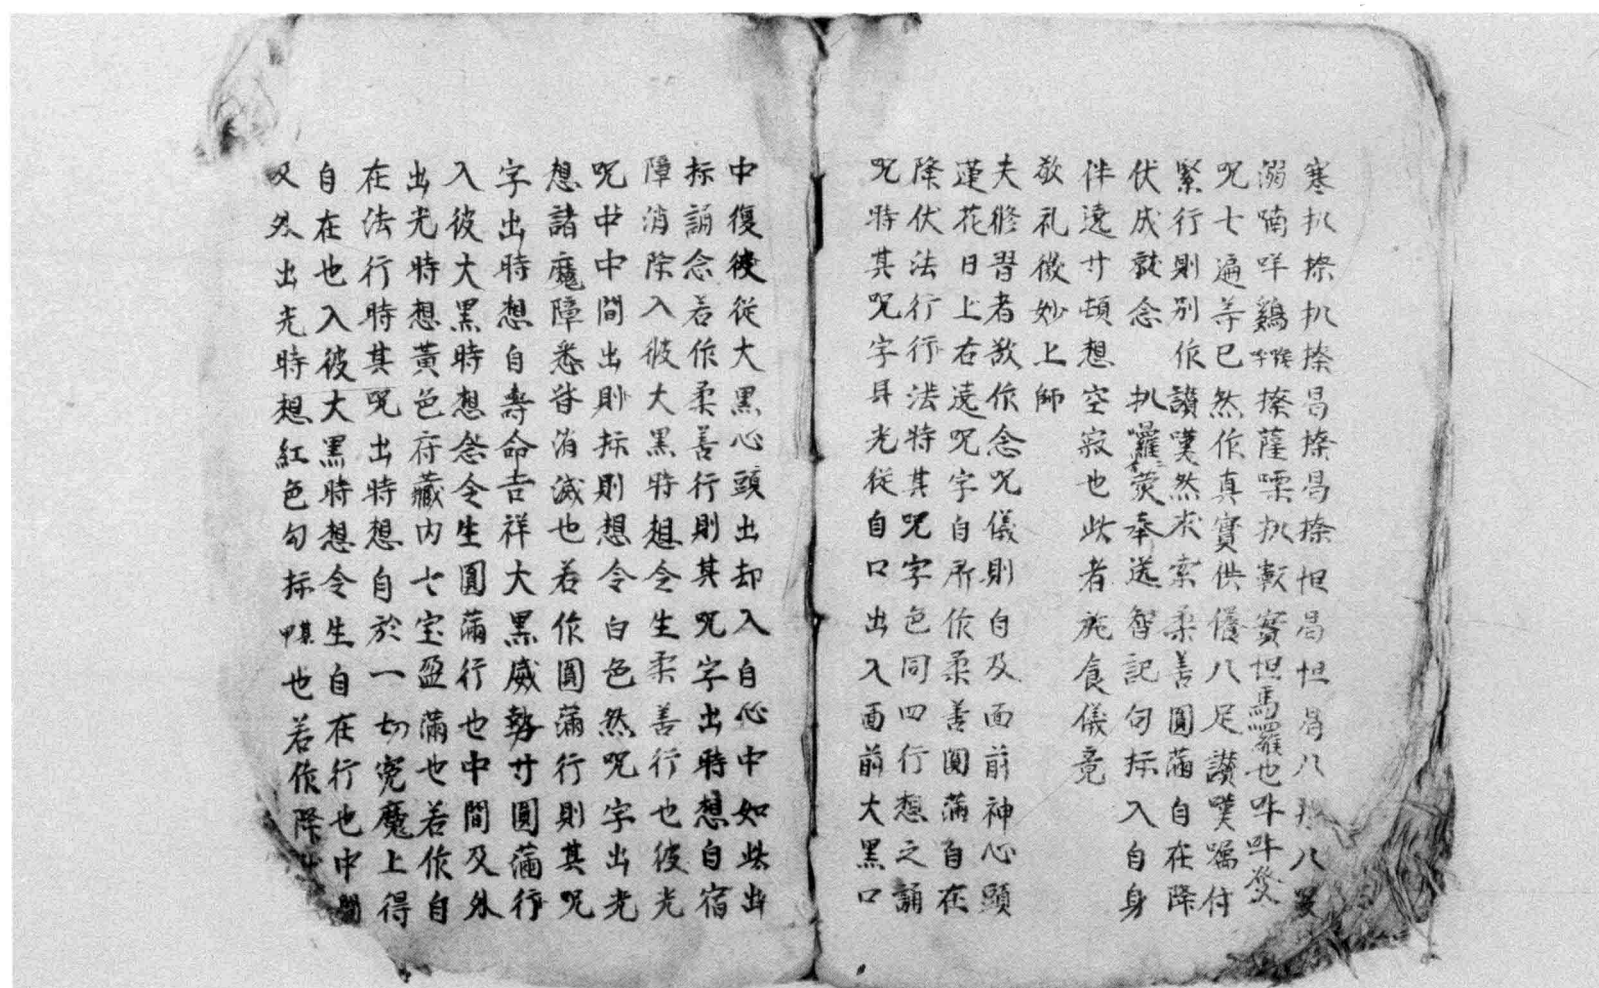 寒扒捺扒捺曷捺曷捺怛曷怛曷八那八
溺喃咩鷄捺薩㗚扒軟實怛馬羅也吽吽癹
呪七遍等已然作真實供養八足讃嘆囑付
緊行則別作讃嘆然求索柔善圓滿自在降
伏成就念扒囉荧奉送智記句抹入自身
伴遶廾頓想空寂也此者施食儀竟
敬礼微妙上師
夫修習者欲作念呪儀則自及面前神心頭
蓮花日上右遶呪字自所作柔善圓滿自在
降伏法行行法時其呪字色同四行想之誦
呪時其呪字具光從自口出入面前大黑口
中復後從大黑心頭出却入自心中如此出
抹誦念若作柔善行則其呪字出時想自宿
障消除入彼大黑時想令生柔善行也彼光
呪中中間出則抹則想令白色然呪字出光
想諸魔障悉皆消滅也若作圓滿行則其呪
字出時想自壽命吉祥大黑威勢廾圓滿行
入彼大黑時想念令生圓滿行也中間及外
出光時想黃色府藏內七宝盈滿也若作自
在法行時其呪出時想自於一切冤魔上得
自在也入彼大黑時想令生自在行也中間
及外出光時想紅色勾抹也若作降